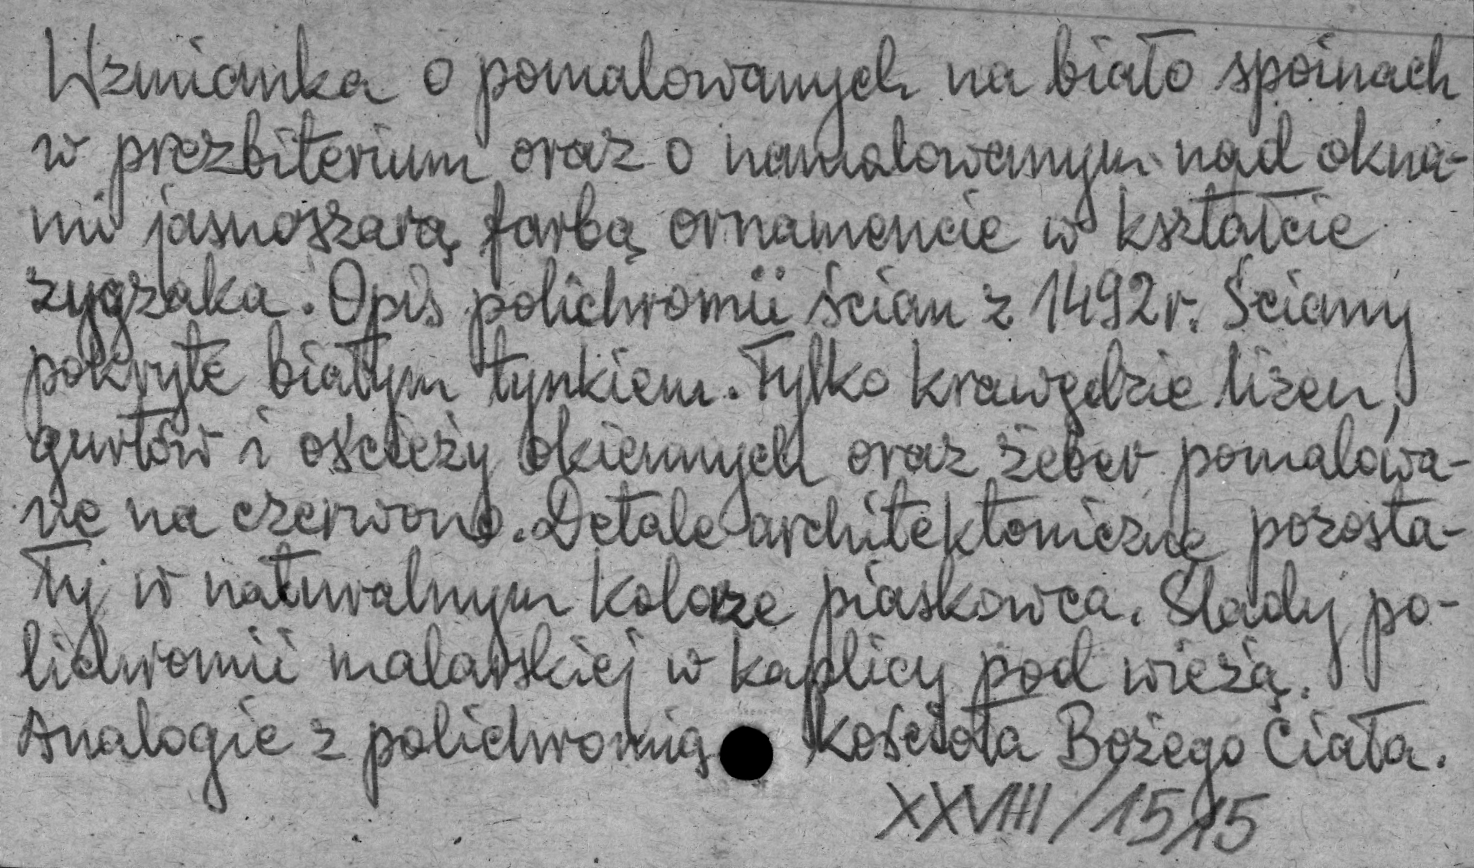 Wzmianka o pomalowanych na biało spoinach
w prezbiterium oraz o namalowanym nad okna-
mi jasnoszarą farbą ornamencie w kształcie
zygzaka. Opis polichromii ścian z 1492 r. Ściany
pokryte białym tynkiem. Tylko krawędzie lizen,
gurtów i ościeży okiennych oraz żeber pomalowa-
ne na czerwono. Detale architektoniczne pozosta-
ły w naturalnym kolorze piaskowca. Ślady po-
lichromii malarskiej w kaplicy pod wieżą.
Analogie z polichromią kościoła Bożego Ciała.
XXVIII/1515